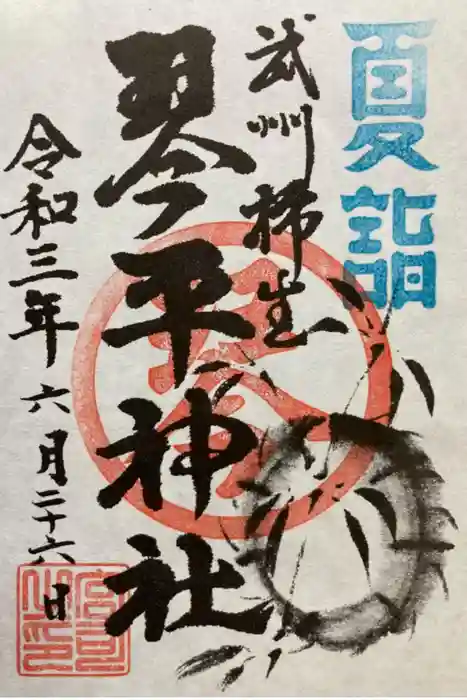 夏詣
武州柿生
琴平神社
令和三年六月二十六日
宮司之印